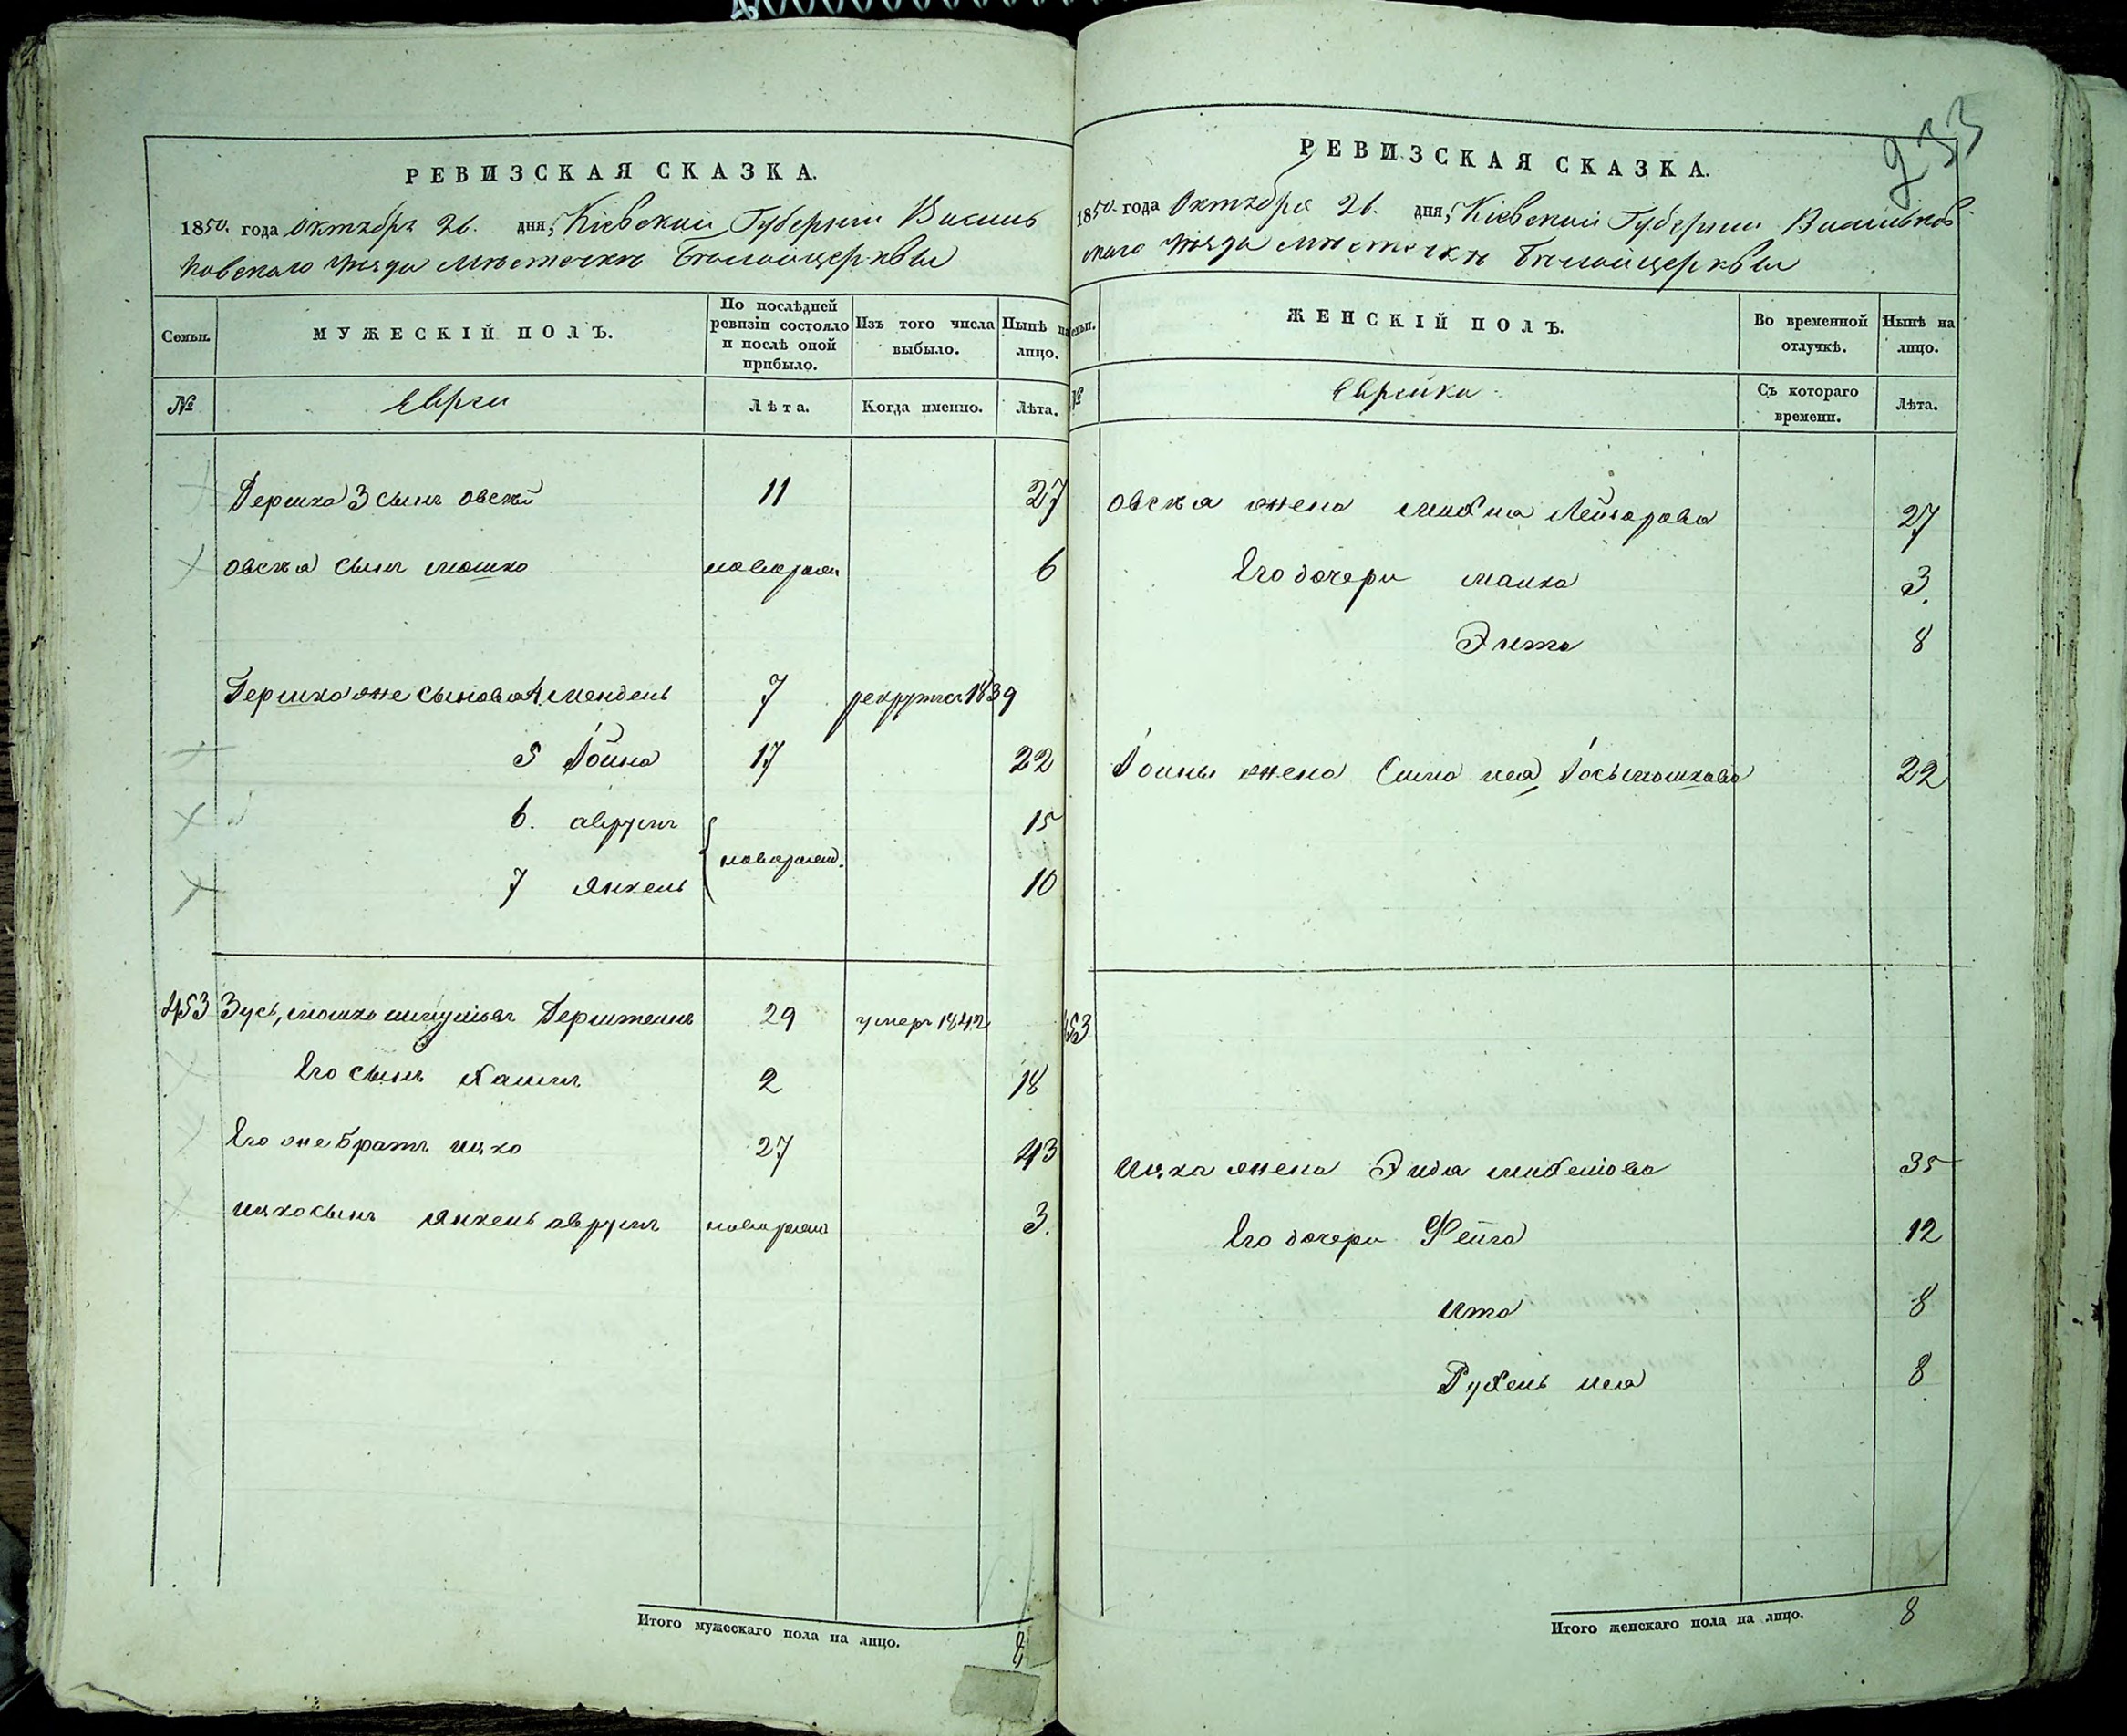 РЕВИЗСКАЯ СКАЗКА.
1850. года Октября 26. дня, Кіевской Губерніи Василь
ковскаго уѣзда мѣстечкѣ Бѣлойцеркви
Семьи.
МУЖЕСКІЙ ПОЛЪ.
По послѣдней
ревизіи состояло
и послѣ оной
прибыло.
Изъ того числа
выбыло.
Нынѣ на
лицо.
№
Евреи
Лѣта.
Когда именно.
Лѣта.
Гершка 3 сынъ Овсѣй 11 27
Овсѣя сынъ Мошко новорожд 6
Гершка же сыновья 4. Мендель 7 рекрутъ 1839
5 Іойна 17 22
6. Аврумъ 15
новорожд.
7 Янкель 10
453 Зусь, Мошко Гершженя 29 умеръ 1842
Его сынъ 2 18
Его же братъ Ицко 27 43
Ицко сынъ Янкель Аврумъ новорожд 3.
Итого мужескаго пола на лицо. 8
233
РЕВИЗСКАЯ СКАЗКА.
1850. года Октября 26. дня, Кіевской Губерніи Васильков
скаго уѣзда мѣстечкѣ Бѣлойцеркви
Семьи.
ЖЕНСКІЙ ПОЛЪ.
Во временной
отлучкѣ.
Нынѣ на
лицо.
№
Еврейки
Съ котораго
времени.
Лѣта.
Овсѣя жена Лейзорова 27
Его дочери Малка 3.
Эита 8
Іойны жена Сима Лея, Іосьмошкова 22
453
Ицка жена Эидя Либешова 35
Его дочери Фейга 12
Ита 8
Рухель Лея 8
Итого женскаго пола на лицо. 8